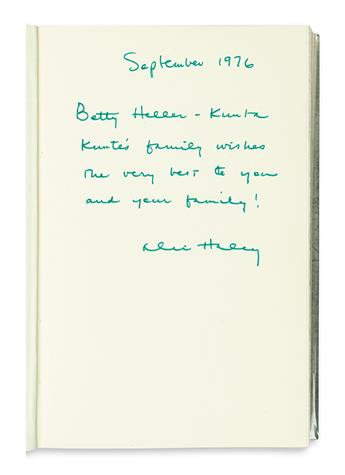 September 1976
Betty Heller - Kunta
Kunte's family wishes
the very best to you
and your family!
Alex Haley